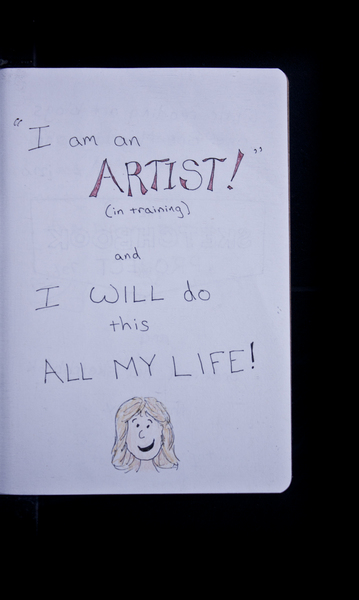 "I am an
ARTIST!"
(in training)
and
I WILL do
this
ALL MY LIFE!